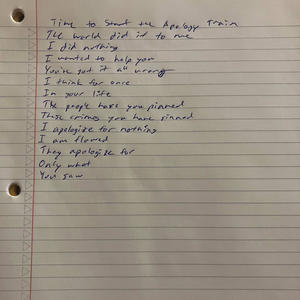 Time to Start the Apology Train
The world did it to me
I did nothing
I wanted to help you
You've got it all wrong
I think for once
In your life
The people have you pinned
These crimes you have sinned
I apologize for nothing
I am flawed
They apologize for
Only what
You saw